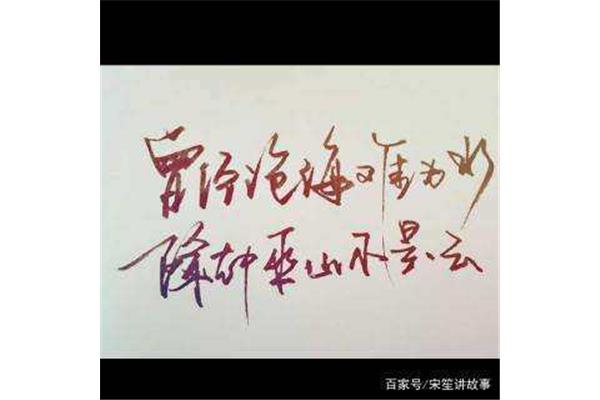 曾经沧海难为水
除却巫山不是云
百家号/宋笙讲故事